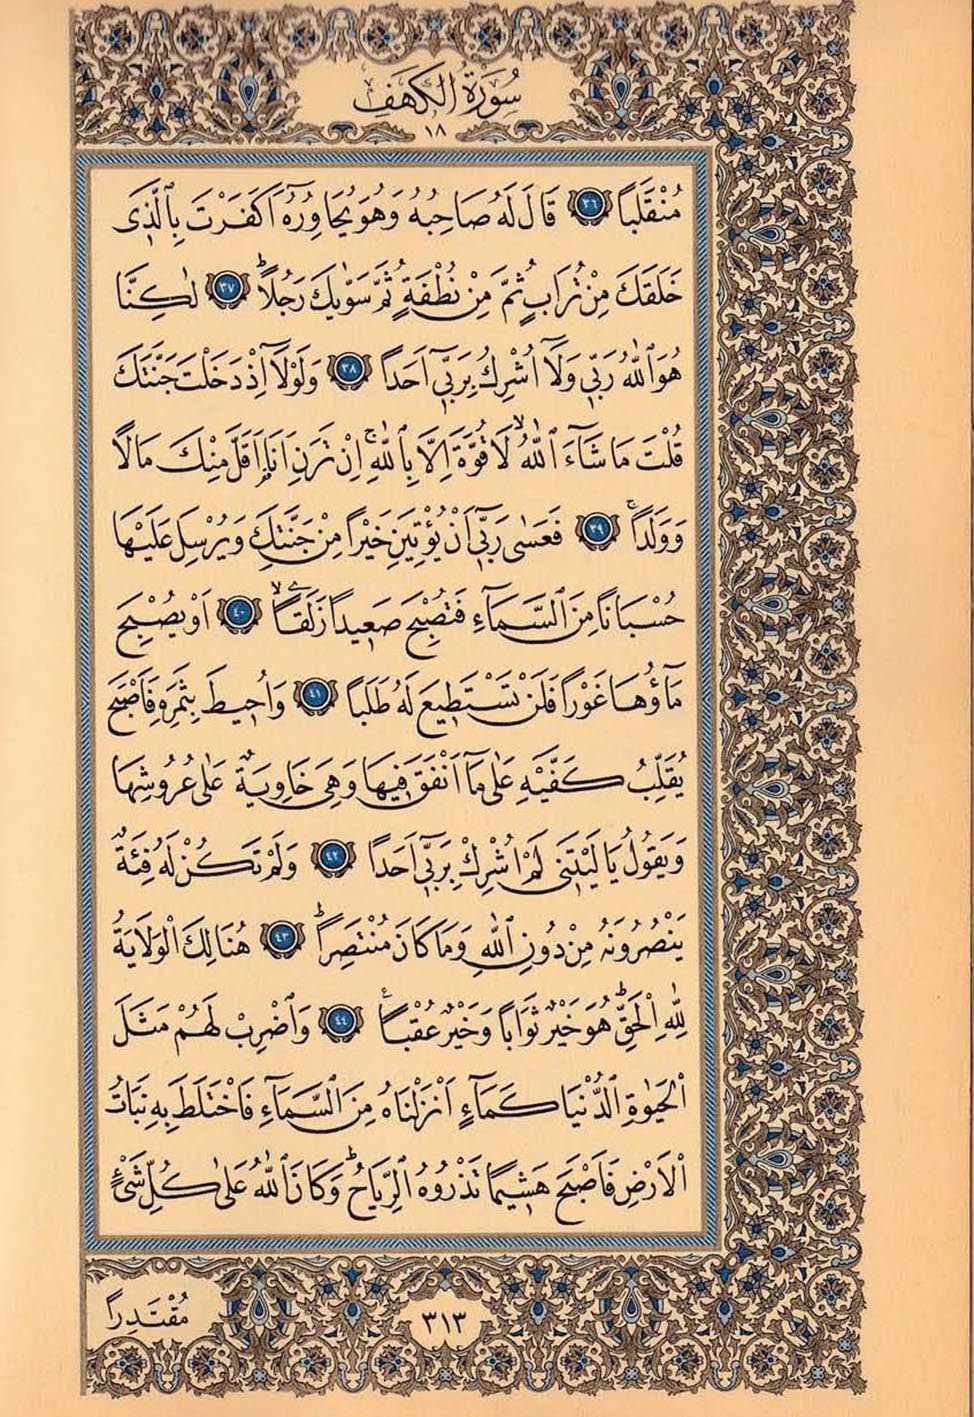 سُورَةُ الْكَهْفِ
١٨
مُنْقَلَبًا ٣٦ قَالَ لَهُ صَاحِبُهُ وَهُوَ يُحَاوِرُهُٓ اَكَفَرْتَ بِالَّذ۪ى
خَلَقَكَ مِنْ تُرَابٍ ثُمَّ مِنْ نُطْفَةٍ ثُمَّ سَوّٰيكَ رَجُلًاۜ ٣٧ لٰكِنَّا
هُوَ اللّٰهُ رَبّ۪ى وَلَٓا اُشْرِكُ بِرَبّ۪ٓى اَحَدًا ٣٨ وَلَوْلَٓا اِذْ دَخَلْتَ جَنَّتَكَ
قُلْتَ مَا شَٓاءَ اللّٰهُۙ لَا قُوَّةَ اِلَّا بِاللّٰهِۚ اِنْ تَرَنِ اَنَا۬ اَقَلَّ مِنْكَ مَالًا
وَوَلَدًاۚ ٣٩ فَعَسٰى رَبّ۪ٓى اَنْ يُؤْتِيَنِ خَيْرًا مِنْ جَنَّتِكَ وَيُرْسِلَ عَلَيْهَا
حُسْبَانًا مِنَ السَّمَٓاءِ فَتُصْبِحَ صَع۪يدًا زَلَقًاۙ ٤٠ اَوْ يُصْبِحَ
مَٓاؤُ۬هَا غَوْرًا فَلَنْ تَسْتَط۪يعَ لَهُ طَلَبًا ٤١ وَاُح۪يطَ بِثَمَرِه۪ فَاَصْبَحَ
يُقَلِّبُ كَفَّيْهِ عَلٰى مَٓا اَنْفَقَ ف۪يهَا وَهِىَ خَاوِيَةٌ عَلٰى عُرُوشِهَا
وَيَقُولُ يَا لَيْتَن۪ى لَمْ اُشْرِكْ بِرَبّ۪ٓى اَحَدًا ٤٢ وَلَمْ تَكُنْ لَهُ فِئَةٌ
يَنْصُرُونَهُ مِنْ دُونِ اللّٰهِ وَمَا كَانَ مُنْتَصِرًاۜ ٤٣ هُنَالِكَ الْوَلَايَةُ
لِلّٰهِ الْحَقِّۜ هُوَ خَيْرٌ ثَوَابًا وَخَيْرٌ عُقْبًا۟ ٤٤ وَاضْرِبْ لَهُمْ مَثَلَ
الْحَيٰوةِ الدُّنْيَا كَمَٓاءٍ اَنْزَلْنَاهُ مِنَ السَّمَٓاءِ فَاخْتَلَطَ بِه۪ نَبَاتُ
الْاَرْضِ فَاَصْبَحَ هَش۪يمًا تَذْرُوهُ الرِّيَاحُۜ وَكَانَ اللّٰهُ عَلٰى كُلِّ شَىْءٍ
٣١٣
مُقْتَدِرًا